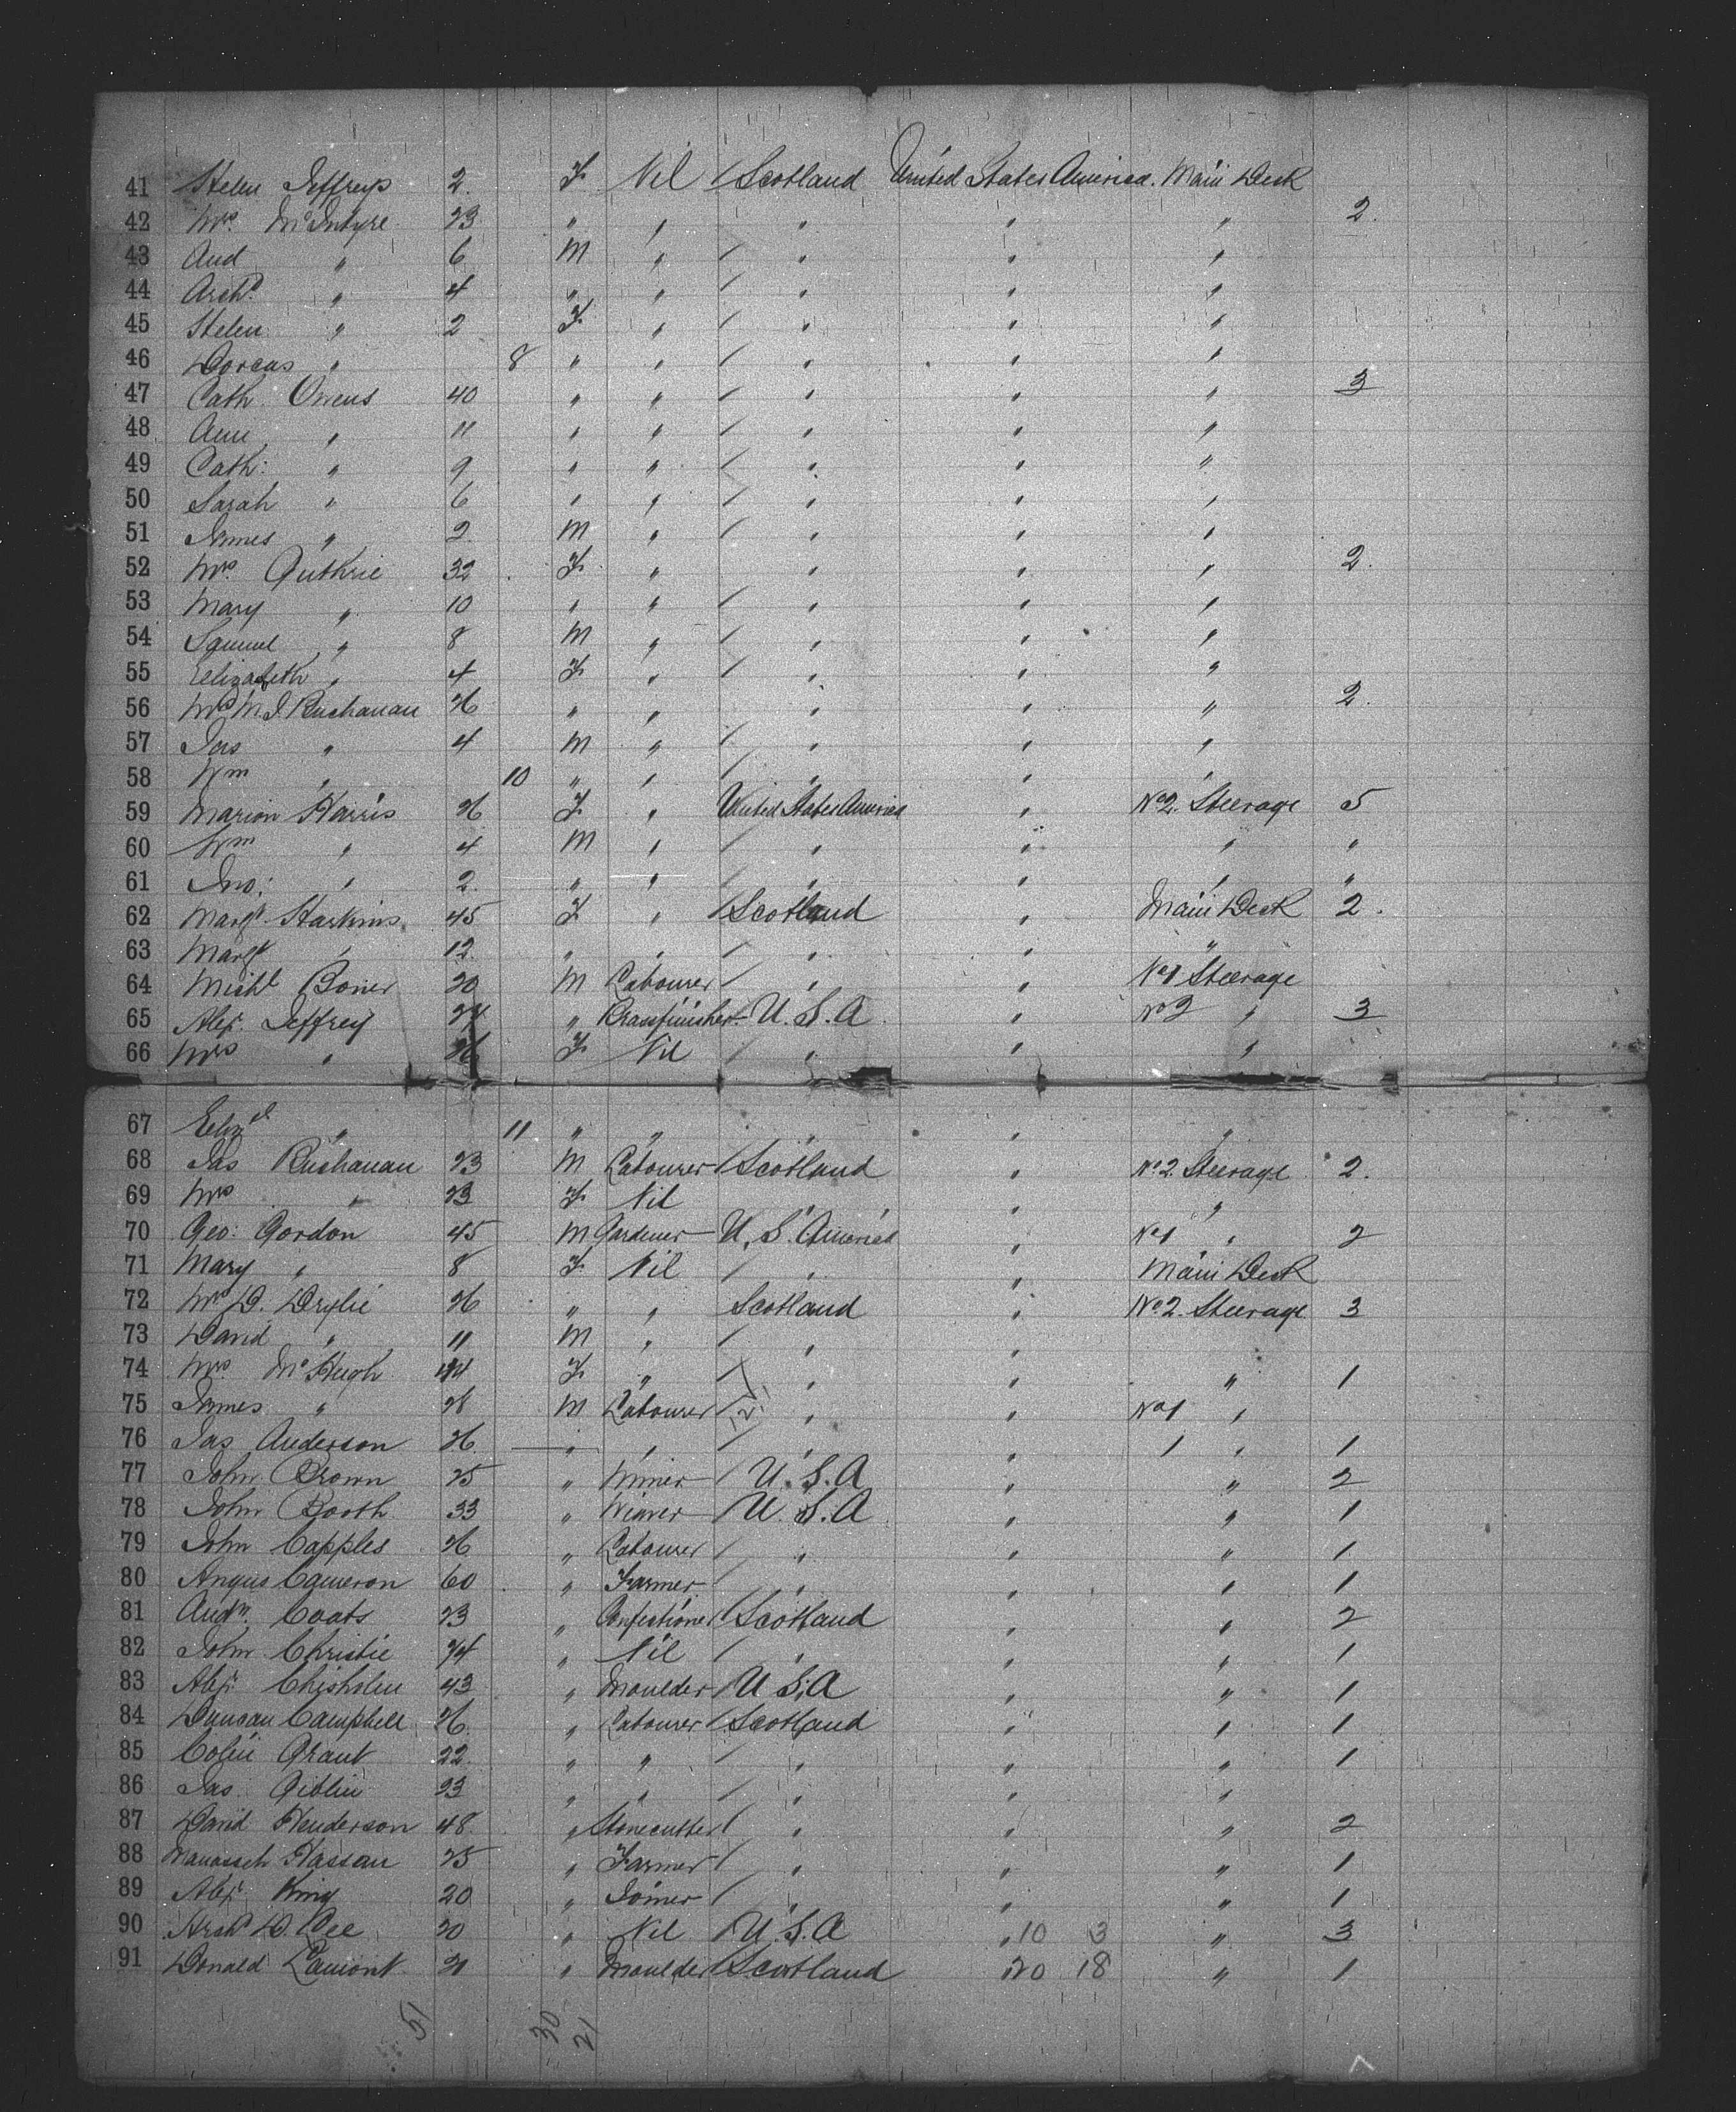 41 Helen Jeffreys 2 F Nil / Scotland United States America. Main Deck
42 Mrs. McIntyre 23 " " " " " 2.
43 And " 6 M " / " " "
44 Archd. " 4 " " / " " "
45 Helen " 2 F " / " " "
46 Dorcas " 8 " " / " " "
47 Cath. Owens 40 " " / " " " 3
48 Ann " 11 " " / " " "
49 Cath: " 9 " " / " " "
50 Sarah " 6 " " / " " "
51 James " 2 M " / " " "
52 Mrs. Guthrie 32 F " " " " 2.
53 Mary " 10 " " / " " "
54 Samuel " 8 M " / " " "
55 Elizabeth " 4 F " / " " "
56 Mrs M. J. Buchanan 26 " " " " " 2.
57 Jas " 4 M " / " " "
58 Wm " 10 " " / " " "
59 Marion Harris 26 F " United States America " No 2. Steerage 5
60 Wm " 4 M " / " " " "
61 Jno: " 2 " " / " " " "
62 Margt. Harkins 45 F " / Scotland " Main Deck 2.
63 Margt " 12 " " / " " "
64 Michl Boner 20 M Labourer / " " No 1 Steerage
65 Alexr. Jeffrey " Brassfinisher U.S.A. " No 2 " 3
66 Mrs " F Nil / " " "
67 Elizth " 11 " " " " "
68 Jas Buchanan 23 M Labourer / Scotland " No. 2. Steerage 2.
69 Mrs " 23 F Nil " " "
70 Geo: Gordon 45 M Gardener U. S. America " No 1 " 2
71 Mary " 8 F Nil / " " Main Deck
72 Mrs D. Drylie 26 " " Scotland " No. 2. Steerage 3
73 David " 11 M " / " "
74 Mrs McHugh 44 F " / " " " 1
75 James " M Labourer / " " No 1 "
76 Jas Anderson 26 " " / " " 1 " 1
77 John Brown 25 " Miner / U.S.A " " 2
78 John Booth 33 " Weaver U.S.A " " 1
79 John Capples 26 " Labourer / " " " 1
80 Angus Cameron 60 " Farmer / " " " 1
81 Andw. Coats 23 " Confectioner / Scotland " " 2
82 John Christie " Nil / " " " 1
83 Alexr. Chisholm 43 " Moulder / U S. A " " 1
84 Duncan Campbell 26 " Labourer / Scotland " " 1
85 Colin Grant 22 " " / " " " 1
86 Jas Giblin 23 " " / " " "
87 David Henderson 48 " Stonecutter / " " " 2
88 Manasseh Hassan 25 " Farmer / " " " 1
89 Alexr. King 20 " Joiner / " " " 1
90 Archd D. Lee 20 " Nil U.S.A " 10 3 " 3
91 Donald Lamont 21 " Moulder Scotland " 20 18 " 1
51 30 21